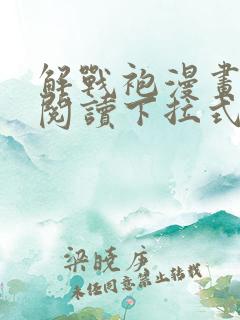 解戰袍漫畫
閱讀下拉式
梁曉庄
未经同意禁止转载